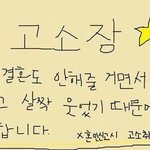 고소장
결혼도 안해줄 거면서
고 살짝 웃었기 때문에
합니다.
x혼빙고시 고소취